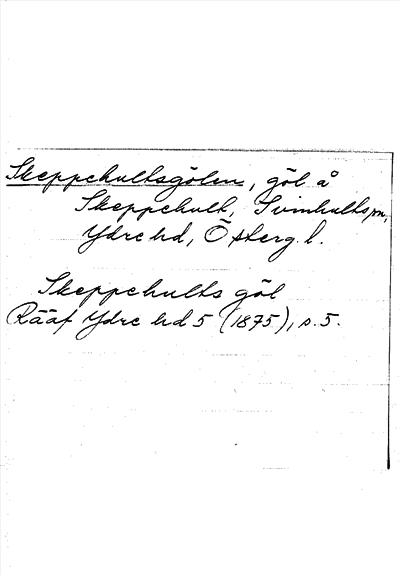 Skeppehultsgölen, göl å
Skeppehult, Svinhults sn,
Ydre hd, Österg. l.
Skeppehults göl
Rääf Ydre hd 5 (1875), s. 5.